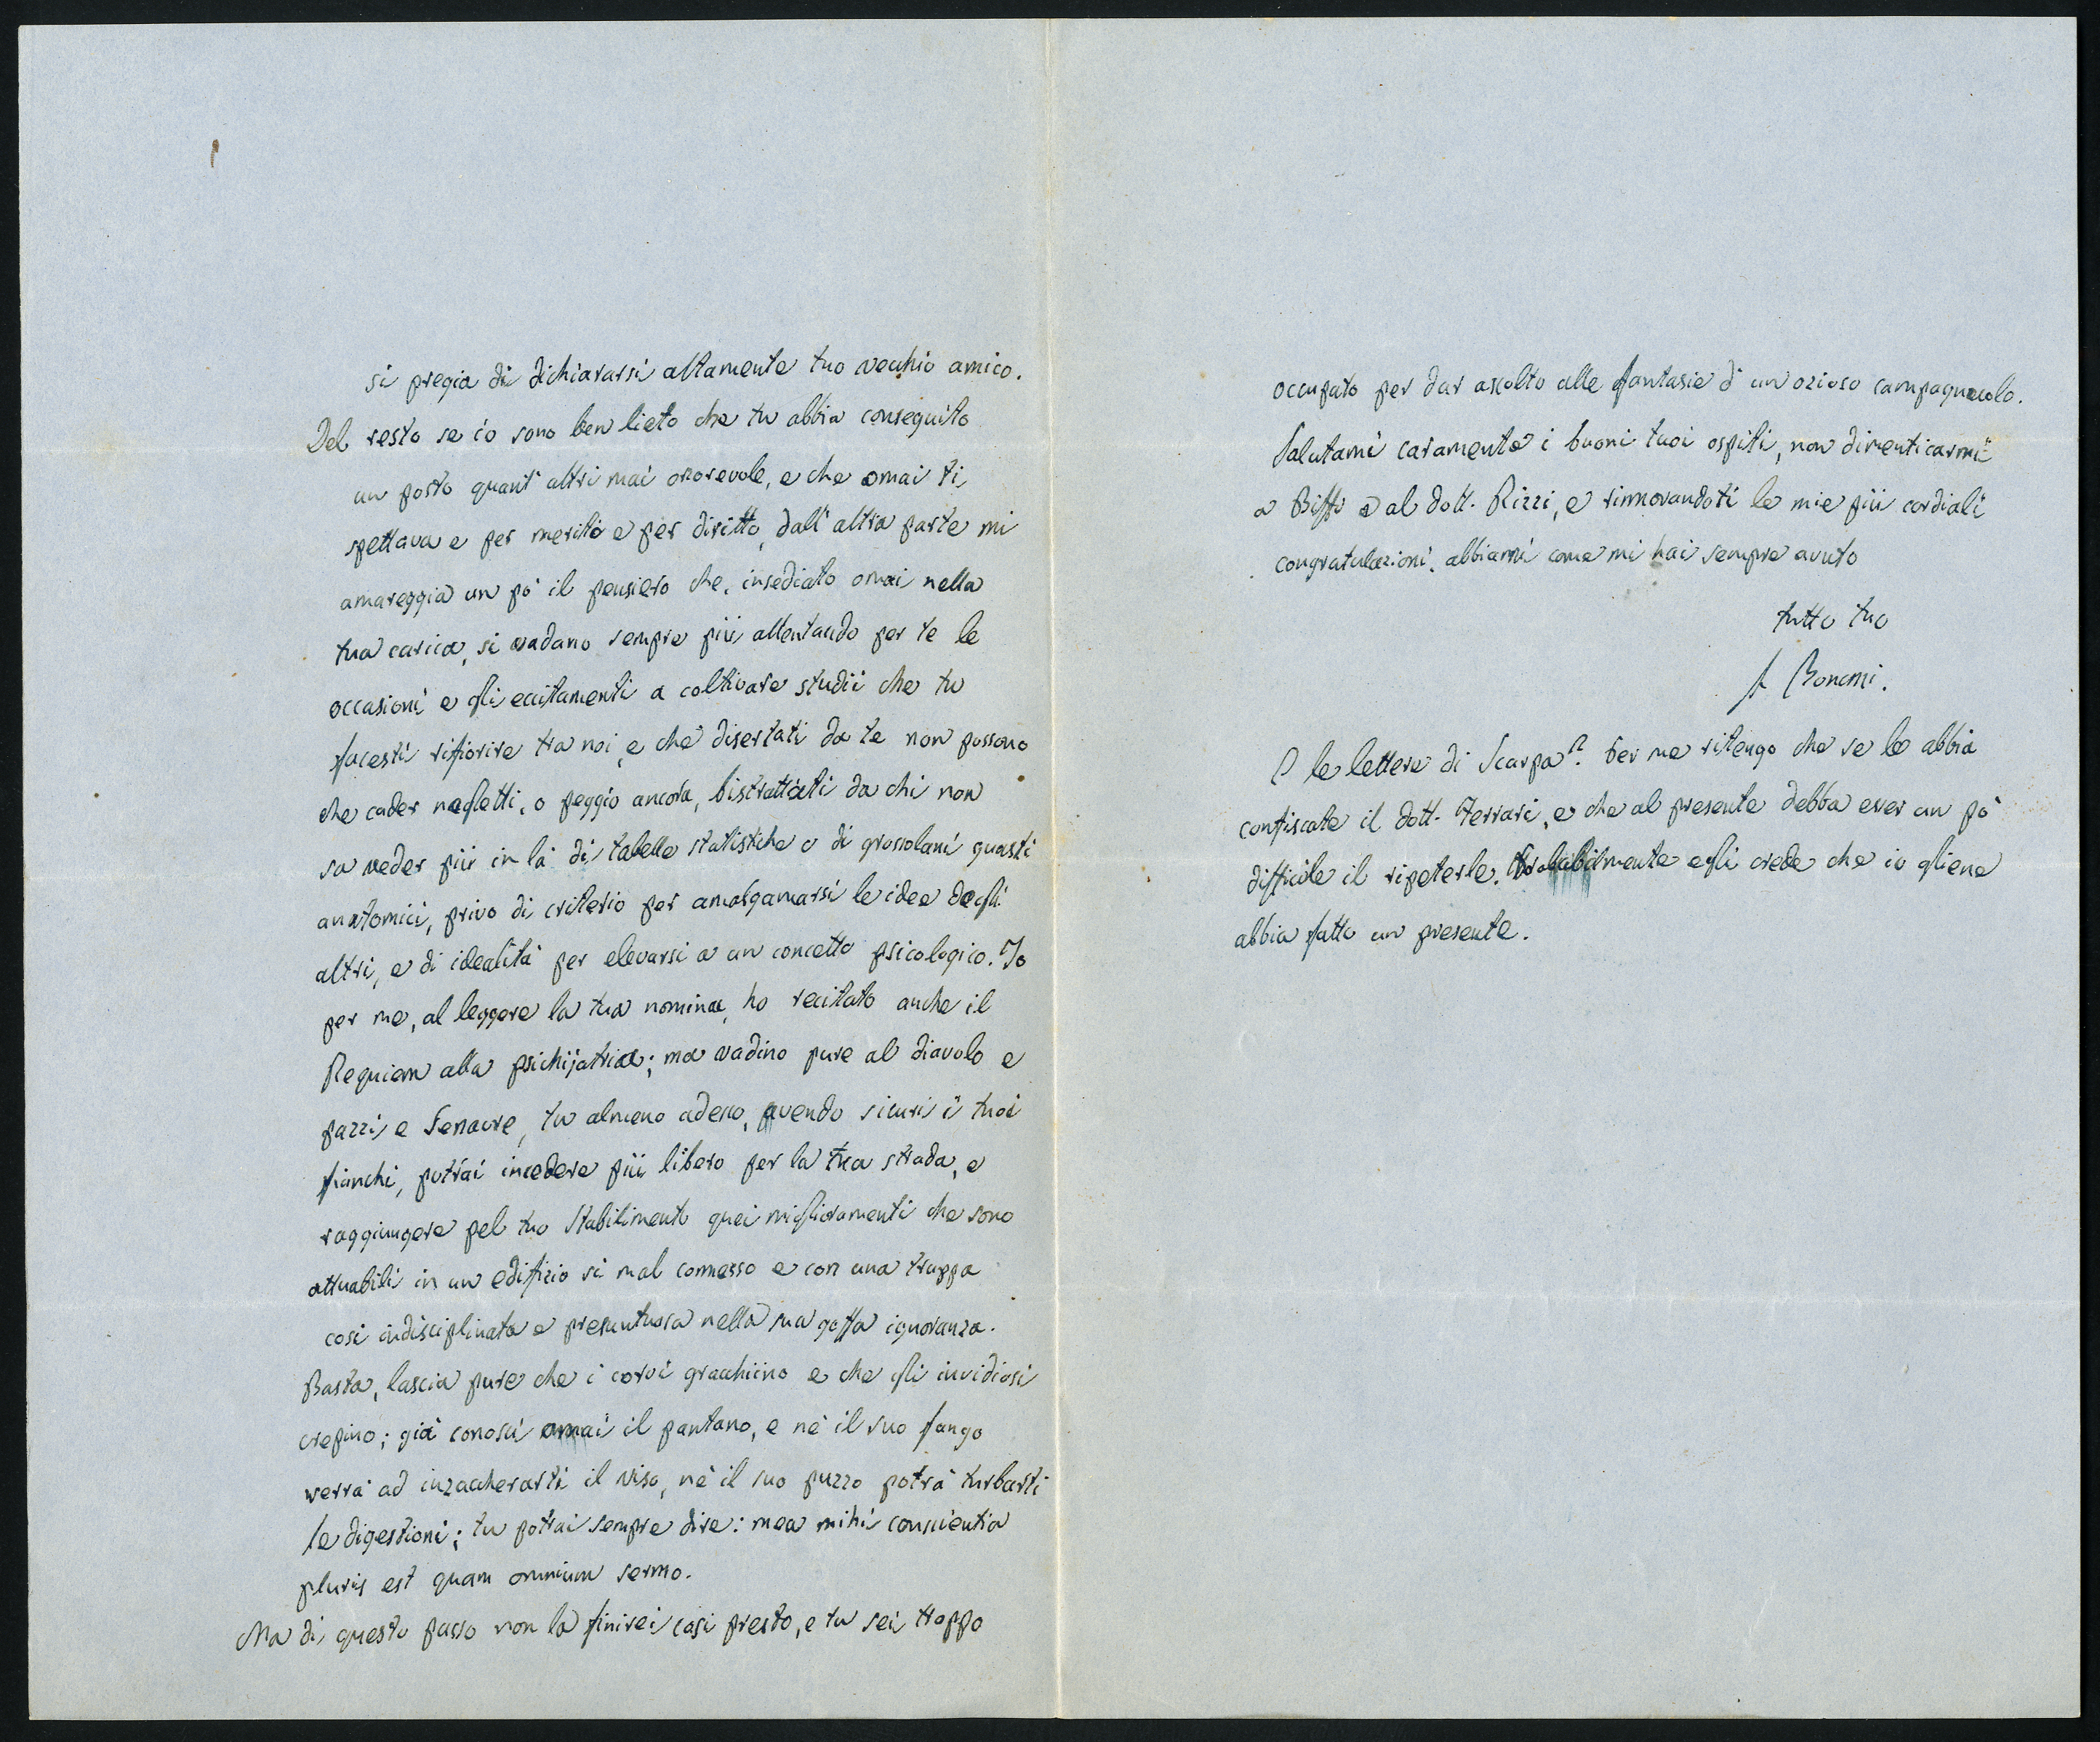 si pregia di dichiararsi altamente tuo vecchio amico.
Del resto se io sono ben lieto che tu abbia conseguito
un posto quant' altri mai onorevole, e che omai ti
spettava e per merito e per diritto, dall' altra parte mi
amareggia un pò il pensiero che, insediato omai nella
tua carica, si vadano sempre più allentando per te le
occasioni e gli eccitamenti a coltivare studii che tu
facesti rifiorire tra noi, e che disertati da te non possono
che cader negletti, o peggio ancora, bistrattati da chi non
sa veder più in là di tabelle statistiche o di grossolani guasti
anatomici, privo di criterio per amalgamarsi le idee degli
altri, e di idealità per elevarsi a un concetto psicologico. Io
per me, al leggere la tua nomina, ho recitato anche il
Requiem alla psichijatria; ma vadino pure al diavolo e
pazzi e , tu almeno adesso, avendo sicuri i tuoi
fianchi, potrai incedere più libero per la tua strada, e
raggiungere pel tuo Stabilimento quei miglioramenti che sono
attuabili in un edifizio si mal connesso e con una truppa
così indisciplinata e presuntuosa nella sua goffa ignoranza.
Basta, lascia pure che i corvi gracchiino e che gli invidiosi
crepino; già conosci omai il pantano, e nè il suo fango
verrà ad inzaccherarti il viso, nè il suo puzzo potrà turbarti
le digestioni; tu potrai sempre dire: mea mihi conscientia
pluris est quam omnium sermo.
Ma di questo passo non la finirei così presto, e tu sei troppo
occupato per dar ascolto alle fantasie d' un ozioso campagnuolo.
Salutami caramente i buoni tuoi ospiti, non dimenticarmi
a Biffi e al dott. Rizzi, e rinnovandoti le mie più cordiali
congratulazioni, abbiami come mi hai sempre avuto
tutto tuo
S Bonomi.
E le lettere di Scarpa? Per me ritengo che se le abbia
confiscate il dott. Ferrari, e che al presente debba esser un pò
difficile il ripeterle. Probabilmente egli crede che io gliene
abbia fatto un presente.